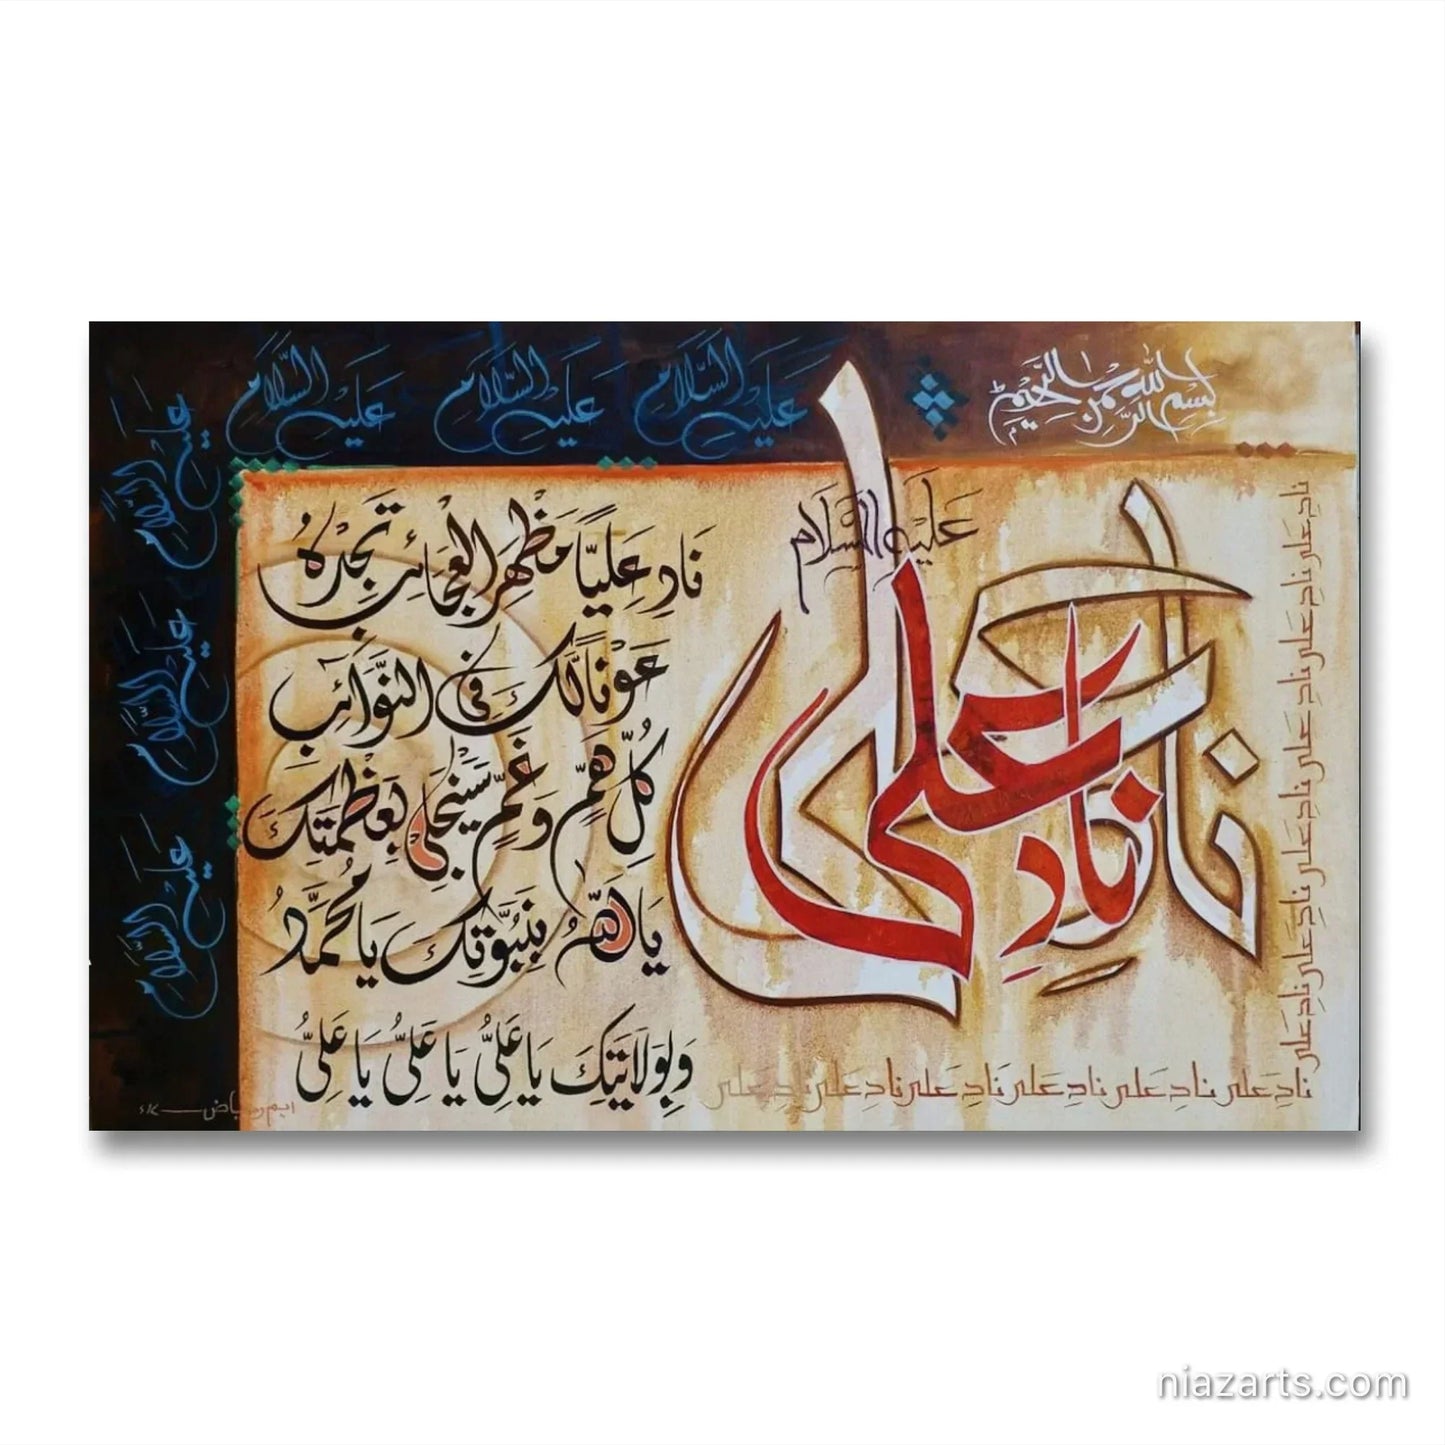 بِسْمِ اللهِ الرَّحْمٰنِ الرَّحِيْمِ
عَلَيْهِ السَّلَامِ عَلَيْهِ السَّلَامِ عَلَيْهِ السَّلَامِ
عَلَيْهِ السَّلَامِ
عَلَيْهِ السَّلَامِ
عَلَيْهِ السَّلَامِ
عَلَيْهِ السَّلَام
نادِ علی
نادِ علی
نَادِ عَلِيًّا مَظْهَرَ الْعَجَائِبِ تَجِدْهُ
عَوْنًا لَّكَ فِی النَّوَائِبِ
كُلِّ هَمٍّ وَغَمٍّ سَيَنْجَلِی بِعَظْمَتِكَ
يَا اَللّٰهُ بِنَبُوَّتِكَ يَا مُحَمَّدُ
وَبِوَلَايَتِكَ يَا عَلِیُّ يَا عَلِیُّ يَا عَلِیُّ
نادِ علی نادِ علی نادِ علی نادِ علی نادِ علی نادِ علی نادِ علی
نادِ علی نادِ علی نادِ علی نادِ علی نادِ علی نادِ علی نادِ علی
niazarts.com